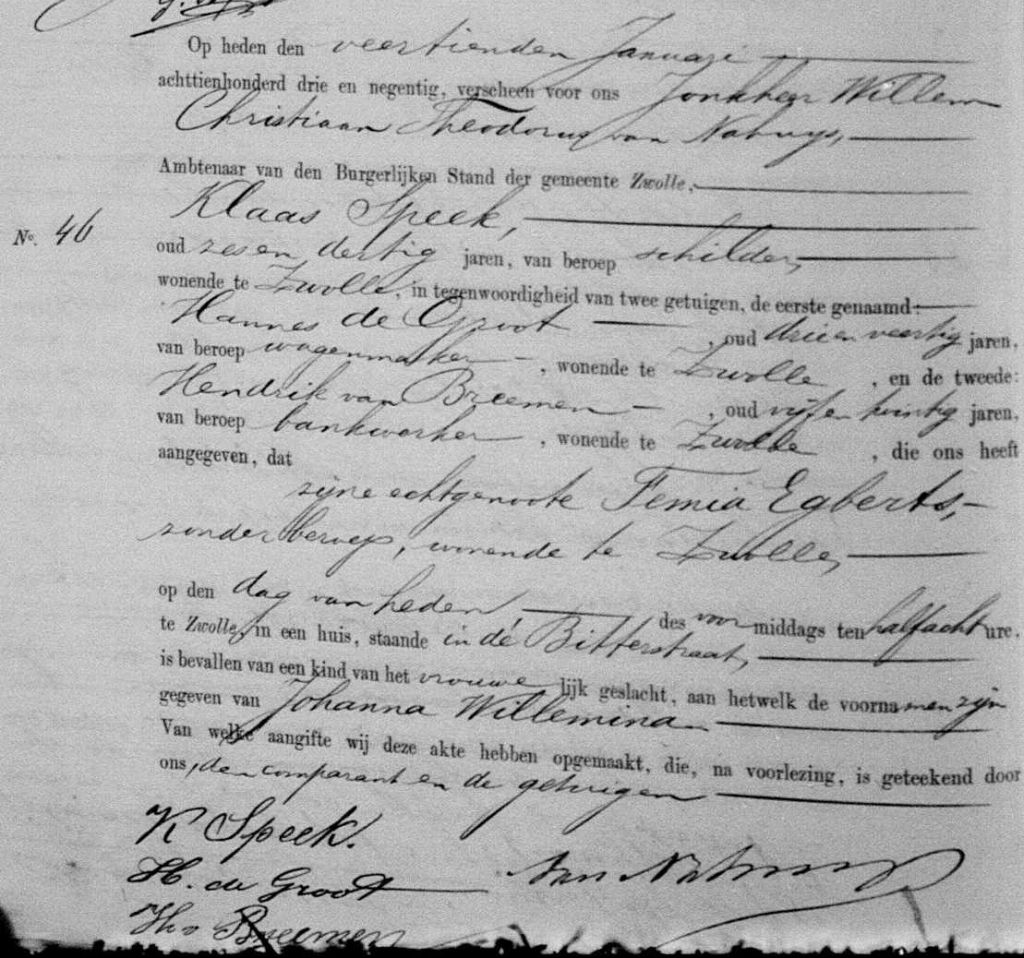 Op heden den veertienden Januari
achttienhonderd drie en negentig, verscheen voor ons Jonkheer Willem
Christiaan Theodorus van Nahuys,
Ambtenaar van den Burgerlijken Stand der gemeente Zwolle,
Klaas Speek,
No. 46
oud zes en dertig jaren, van beroep schilder,
wonende te Zwolle, in tegenwoordigheid van twee getuigen, de eerste genaamd:
Hannes de Groot, oud drie en veertig jaren,
van beroep wagenmaker, wonende te Zwolle, en de tweede:
Hendrik van Breemen, oud vijf en twintig jaren,
van beroep bankwerker, wonende te Zwolle, die ons heeft
aangegeven, dat
zijne echtgenoote Femia Egberts,
zonder beroep, wonende te Zwolle,
op den dag van heden des voormiddags ten halfacht ure,
te Zwolle, in een huis, staande in de Bitterstraat,
is bevallen van een kind van het vrouwelijk geslacht, aan hetwelk de voornamen zijn
gegeven van Johanna Willemina
Van welke aangifte wij deze akte hebben opgemaakt, die, na voorlezing, is geteekend door
ons, den comparant en de getuigen
K Speek.
H. de Groot van Nahuys
H v Breemen